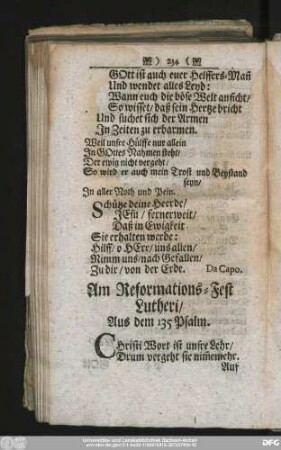 ) 234 (
GOtt ist auch euer Helffers-Mañ
Und wendet alles Leyd:
Wann euch die böse Welt anficht/
So wisset/ daß sein Hertze bricht
Und suchet sich der Armen
In Zeiten zu erbarmen.
Weil unsre Hülffe nur allein
In GOttes Nahmen steht/
Der ewig nicht vergeht/
So wird er auch mein Trost und Beystand
seyn/
In aller Noth und Pein.
Schütze deine Heerde/
JEsu/ fernerweit/
Daß in Ewigkeit
Sie erhalten werde:
Hilff/ o HErr/ uns allen/
Nimm uns/ nach Gefallen/
Zu dir/ von der Erde. Da Capo.
Am Reformations-Fest
Lutheri/
Aus dem 135 Psalm.
CHristi Wort ist unsre Lehr/
Drum vergeht sie nim̃emehr.
Auf
Universitäts- und Landesbibliothek Sachsen-Anhalt
DFG